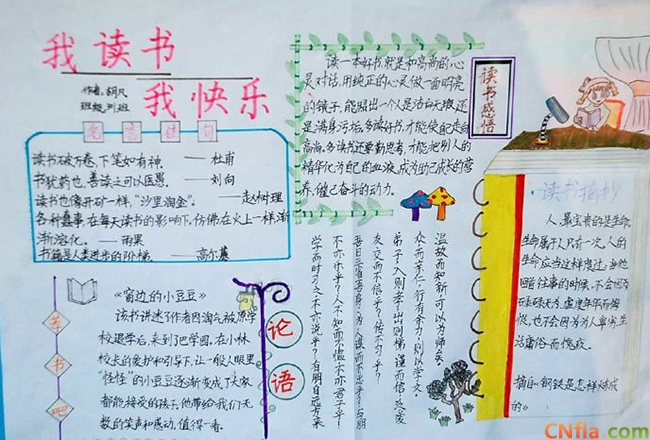 我读书
我快乐
作者:胡凡
班级:
名言佳句
读书破万卷,下笔如有神。——杜甫
书犹药也,善读之可以医愚。——刘向
读书也像开矿一样,"沙里淘金"。——赵树理
各种蠢事,在每天读书的影响下,仿佛在火上一样渐
渐溶化。——雨果
书籍是人类进步的阶梯。——高尔基
读一本好书,就是和高尚的心
灵对话,用纯正的心灵做一面明亮
的镜子,能照出一个人是洁白无瑕,还
是满身污垢。多读好书,才能使
高尚。多读书还要勤思考,才能把别人的
精华化为自己的血液,成为自己成长的营
养,催己奋斗的动力。
读书感悟
读书摘抄
人最宝贵的是生命,
生命属于人只有一次,人的
生命应当这样度过:当他
回首往事的时候,不会因为
碌碌无为,虚度年华而悔
恨,也不会因为为人卑劣,生
活庸俗而愧疚。
摘自《钢铁是怎样炼成
的》
荐书吧
《窗边的小豆豆》
该书讲述了作者因淘气被原学
校退学后,来到巴学园,在小林
校长的爱护和引导下,让一般人眼里
"怪怪"的小豆豆逐渐变成了大家
都能接受的孩子,他带给我们无
数的笑声和感动,值得一看。
论语
温故而知新,可以为师矣。
众而亲仁,行有余力,则以学文。
弟子入则孝,出则悌,谨而信,泛爱
友交而不信乎?传不习乎?
吾日三省吾身:为人谋而不忠乎?与朋
不亦乐乎?人不知而不愠,不亦君子乎!
学而时习之,不亦说乎?有朋自远方来
CNfla.com